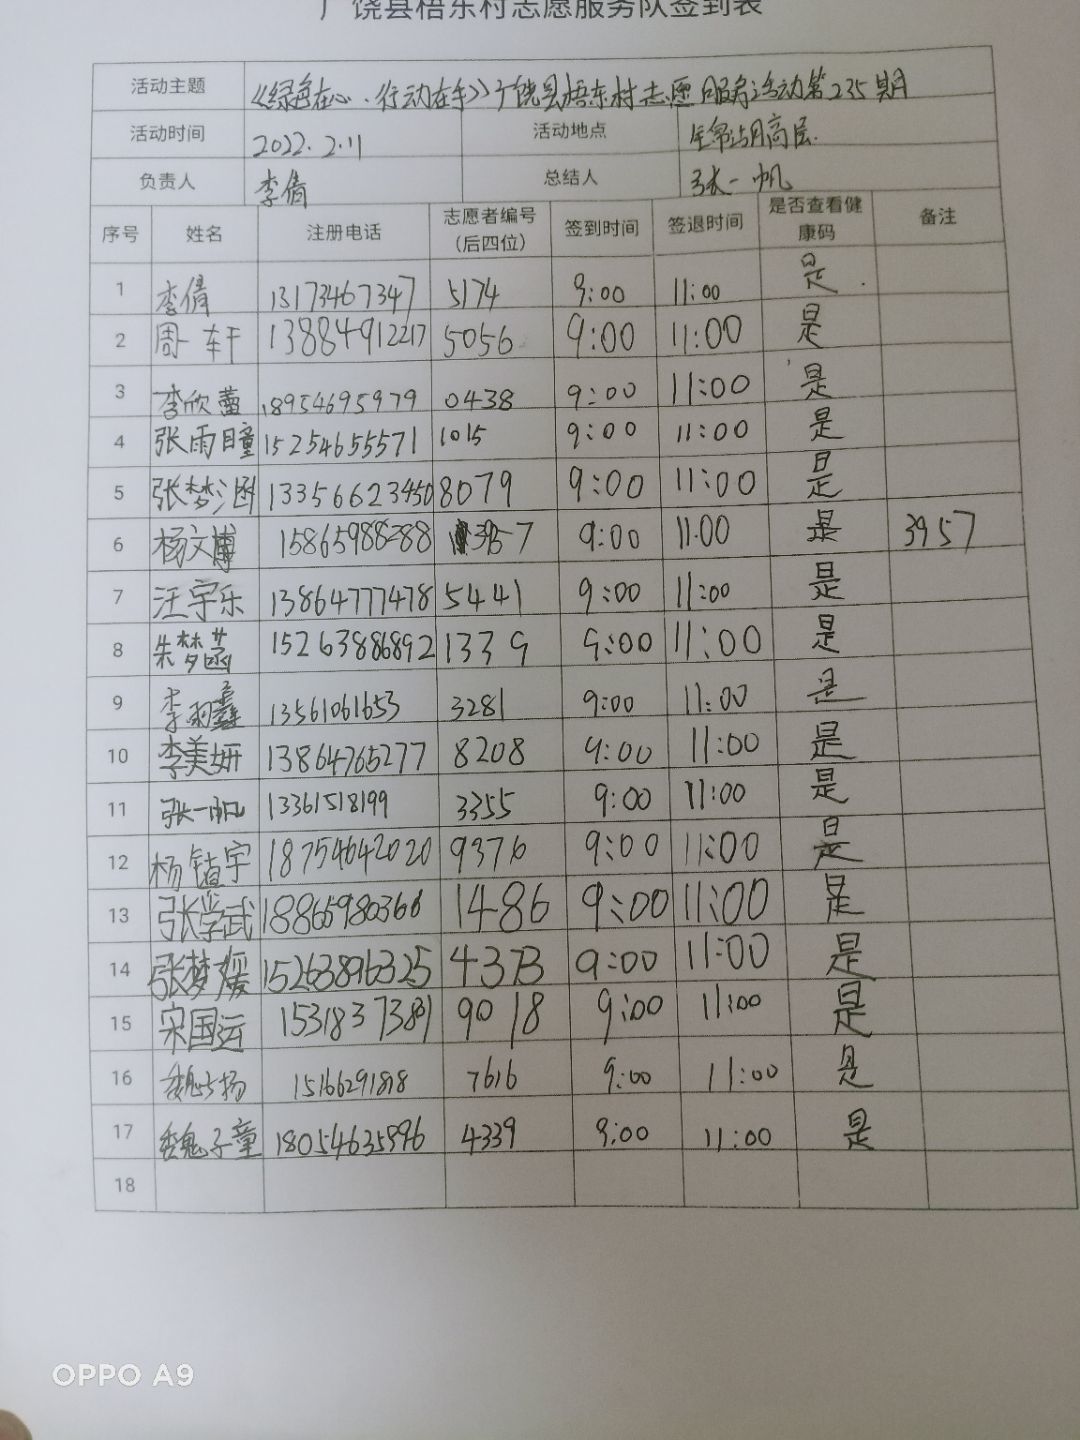 广饶县梧东村志愿服务队签到表
活动主题 《绿色在心·行动在手》广饶县梧东村志愿服务活动第235期
活动时间 2022.2.11 活动地点 月高层.
负责人 李倩 总结人 张一帆
序号 姓名 注册电话 志愿者编号（后四位） 签到时间 签退时间 是否查看健康码 备注
1 李倩 13173467347 5174 9:00 11:00 是
2 周一轩 13884912217 5056 9:00 11:00 是
3 李欣蕾 18954695979 0438 9:00 11:00 是
4 张雨瞳 15254655571 1015 9:00 11:00 是
5 张梦涵 13356623450 8079 9:00 11:00 是
6 杨文博 15865988288 9:00 11:00 是 3957
7 汪宇乐 13864777478 5441 9:00 11:00 是
8 朱梦菡 15263886892 1339 9:00 11:00 是
9 李 13561061653 3281 9:00 11:00 是
10 李美妍 13864765277 8208 9:00 11:00 是
11 张一帆 13361518199 3355 9:00 11:00 是
12 杨镇宇 18754642020 9376 9:00 11:00 是
13 张学武 18865980366 1486 9:00 11:00 是
14 张梦媛 15263896325 4373 9:00 11:00 是
15 宋国运 15318373891 9018 9:00 11:00 是
16 15166291818 7616 9:00 11:00 是
17 魏子童 18054635996 4339 9:00 11:00 是
18
OPPO A9